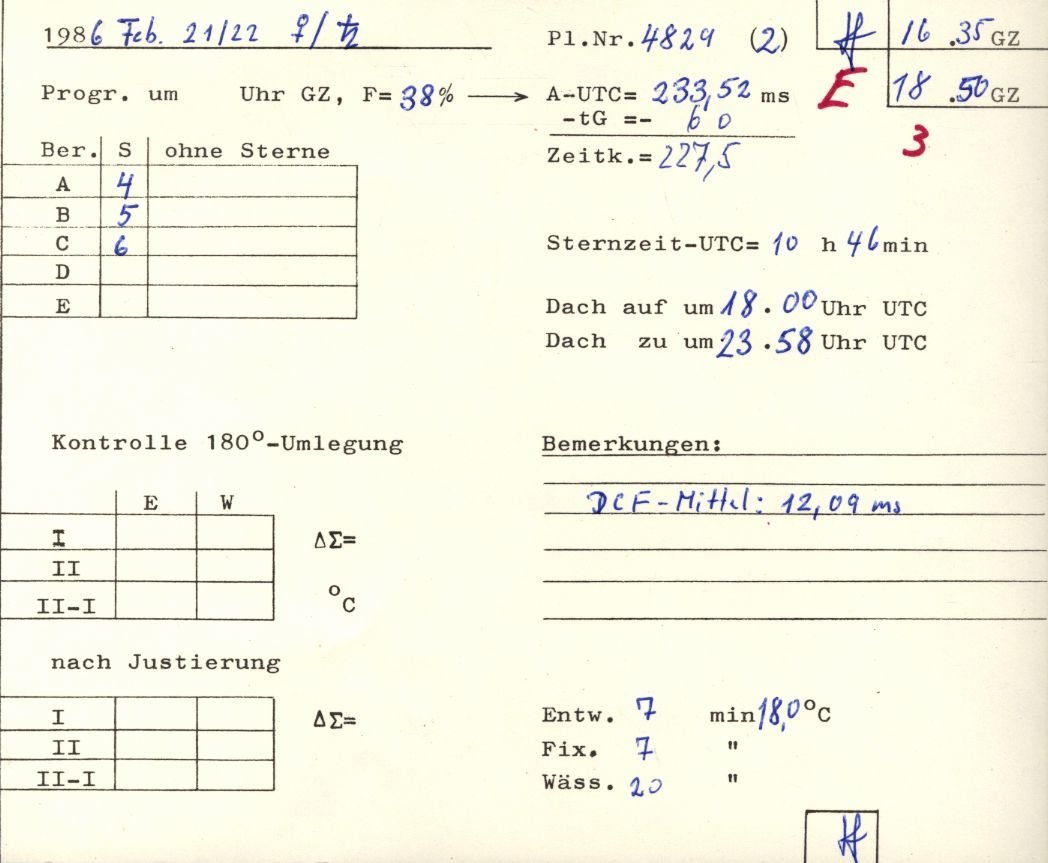 1986 Feb. 21/22 ♀/♄
Pl.Nr. 4829 (2)
16 .35 GZ
Progr. um Uhr GZ, F= 38% → A-UTC= 233,52 ms
E
18 .50 GZ
-tG =- 6 0
3
Zeitk.= 227,5
Ber. S ohne Sterne
A 4
B 5
C 6
D
E
Sternzeit-UTC= 10 h 46 min
Dach auf um 18.00 Uhr UTC
Dach zu um 23.58 Uhr UTC
Kontrolle 180°-Umlegung
E W
I ΔΣ=
II
II-I °C
Bemerkungen:
DCF-Mittel: 12,09 ms
nach Justierung
I ΔΣ=
II
II-I
Entw. 7 min 18,0°C
Fix. 7 "
Wäss. 20 "